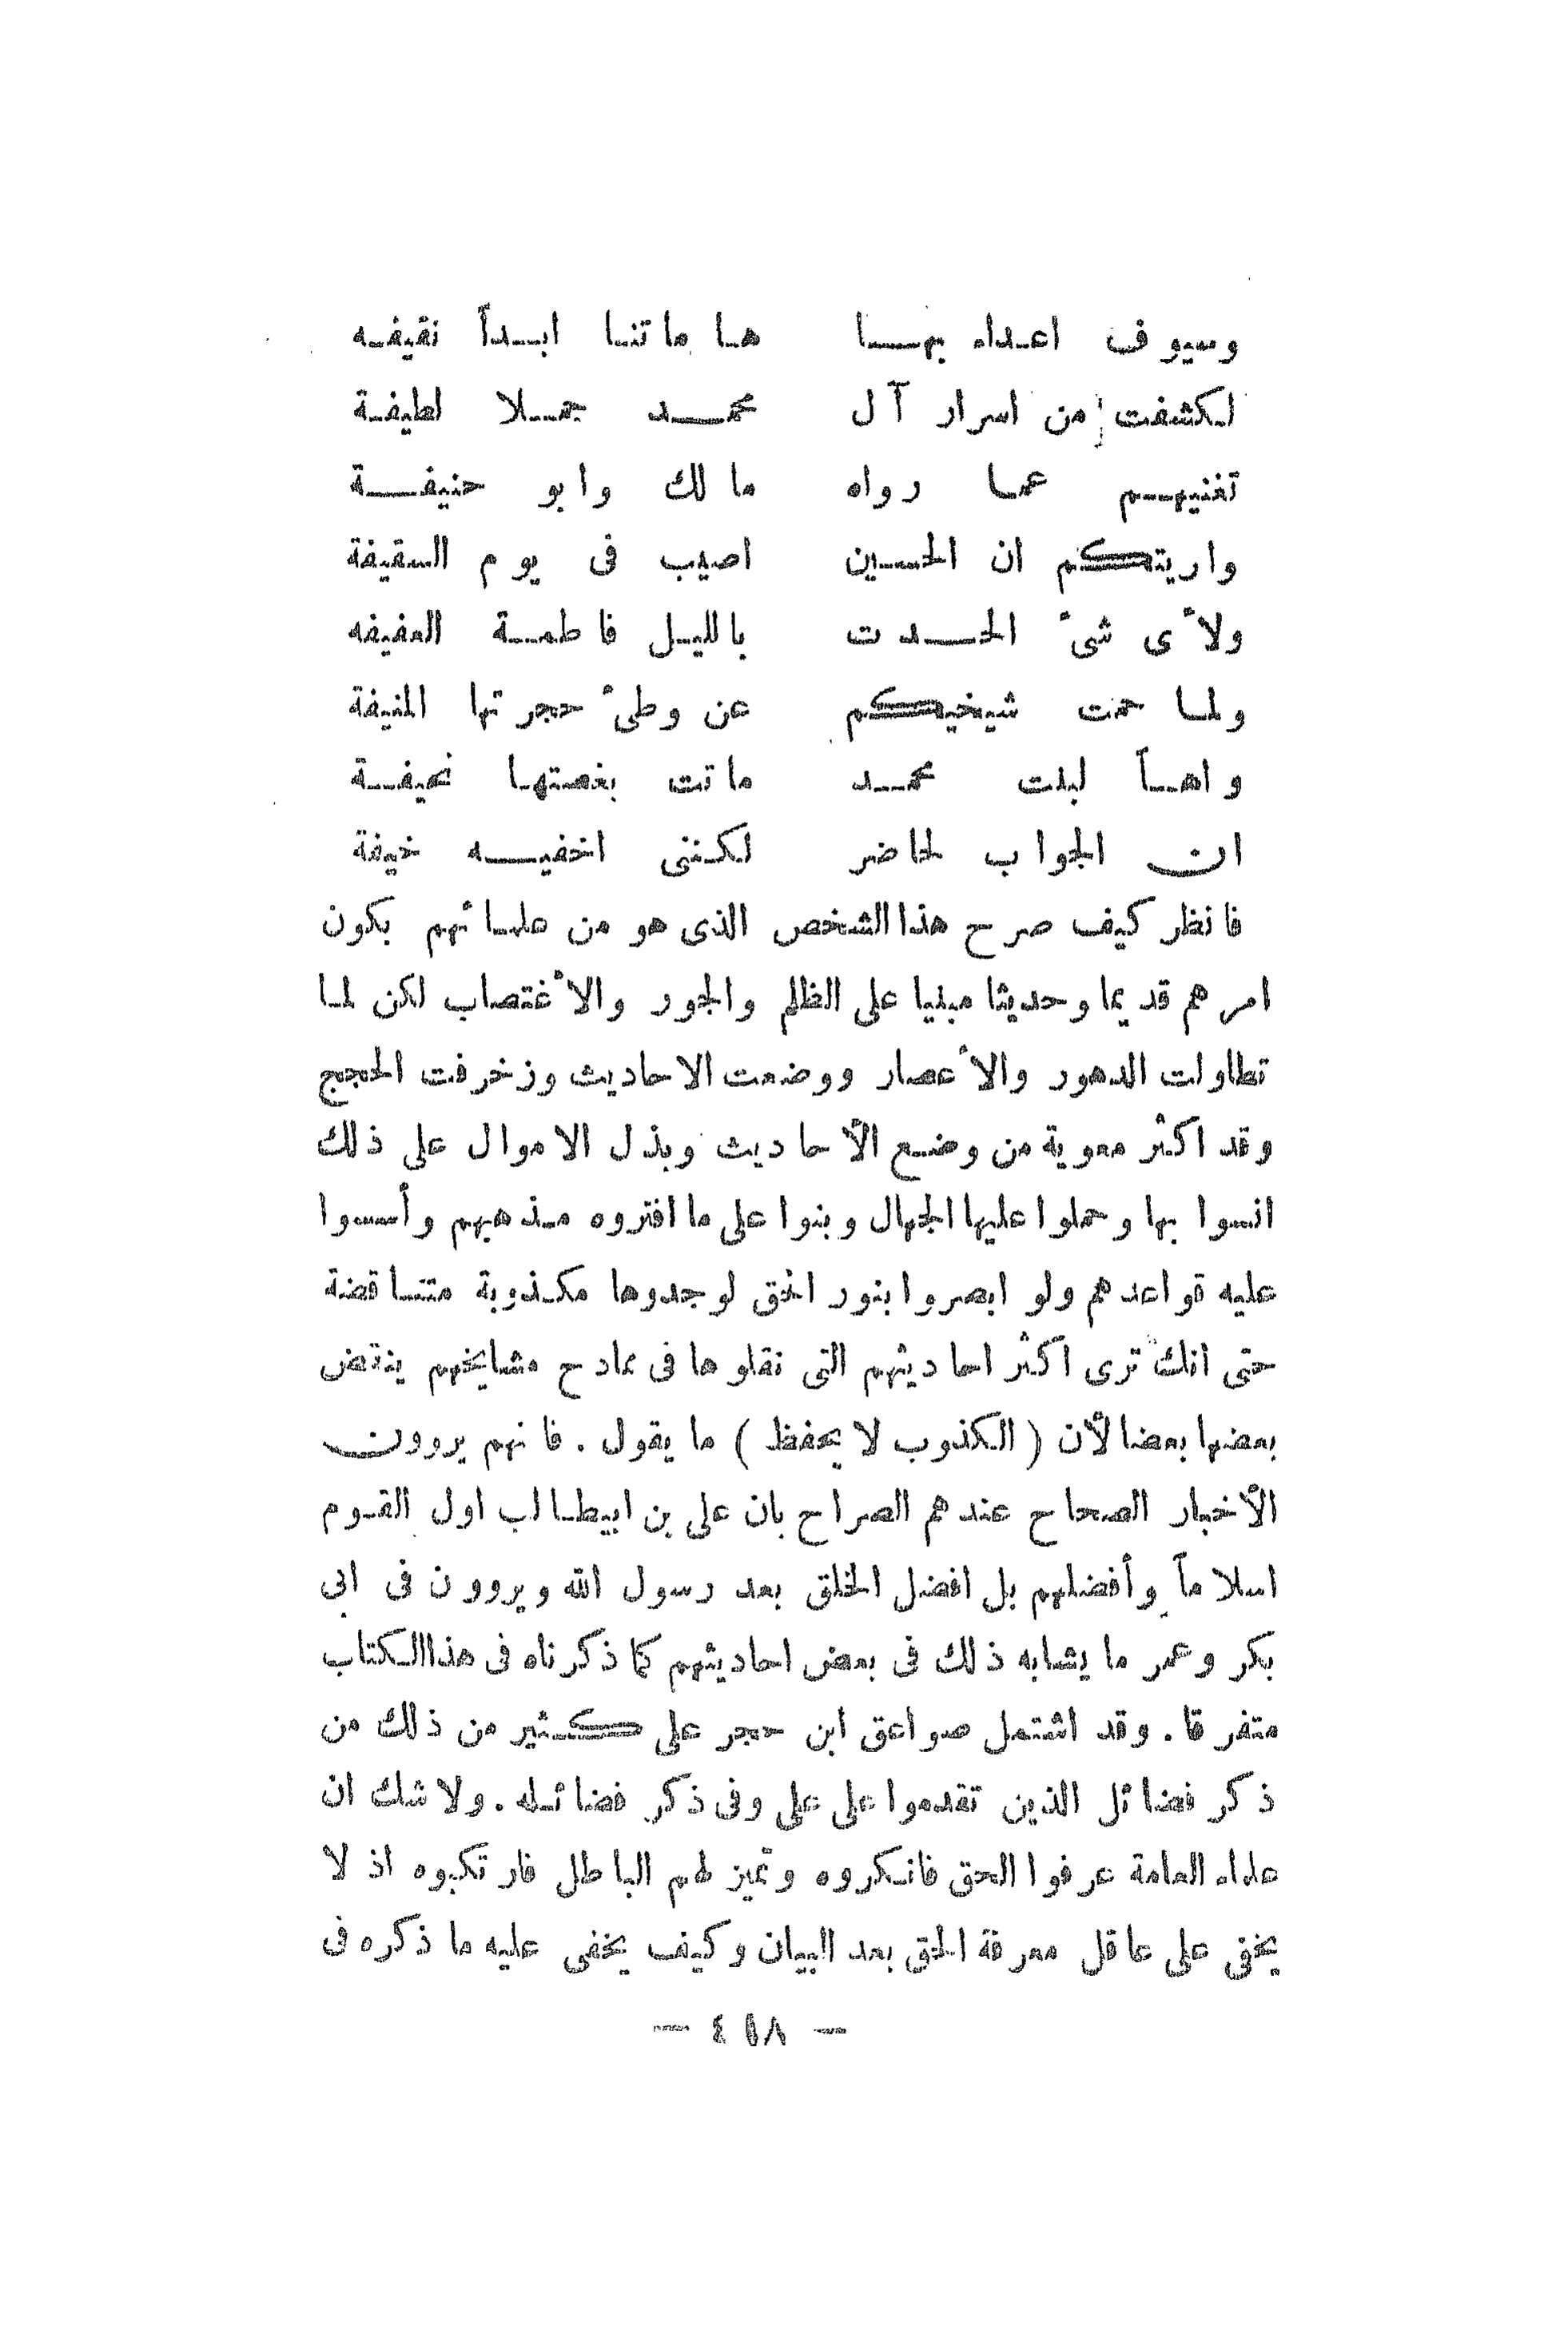 وسيوف اعداء بها هاماتنا ابداً نقيفه
لكشفت من اسرار آل محمد جملا لطيفة
تغنيهم عما رواه مالك وابو حنيفة
واريتكم ان الحسين اصيب فى يوم السقيفة
ولأى شىٔ الحدت بالليل فاطمة العفيفه
ولما حمت شيخيكم عن وطىٔ حجرتها المنيفة
واهاً لبنت محمد ماتت بغصتها نحيفة
ان الجواب لحاضر لكننى اخفيه خيفة
فانظر كيف صرح هذا الشخص الذى هو من علمائهم بكون
امرهم قديما وحديثا مبنيا على الظلم والجور والأغتصاب لكن لما
تطاولت الدهور والأعصار ووضعت الاحاديث وزخرفت الحجج
وقد اكثر معوية من وضع الأحاديث وبذل الاموال على ذلك
انسوا بها وحملوا عليها الجهال وبنوا على ما افتروه مذهبهم وأسسوا
عليه قواعدهم ولو ابصروا بنور الحق لوجدوها مكذوبة متناقضة
حتى انك ترى اكثر احاديثهم التى نقلوها فى مادح مشايخهم ينقض
بعضها بعضا لأن ( الكذوب لا يحفظ ) ما يقول . فانهم يروون
الأخبار الصحاح عندهم الصراح بان على بن ابيطالب اول القوم
اسلاماً وأفضلهم بل افضل الخلق بعد رسول الله ويروون فى ابى
بكر وعمر ما يشابه ذلك فى بعض احاديثهم كما ذكرناه فى هذا الكتاب
متفرقا . وقد اشتمل صواعق ابن حجر على كثير من ذلك من
ذكر فضائل الذين تقدموا على على وفى ذكر فضائله . ولا شك ان
علماء العامة عرفوا الحق فانكروه وتميز لهم الباطل فارتكبوه اذ لا
يخفى على عاقل معرفة الحق بعد البيان وكيف يخفى عليه ما ذكره فى
— ٤٥٨ —